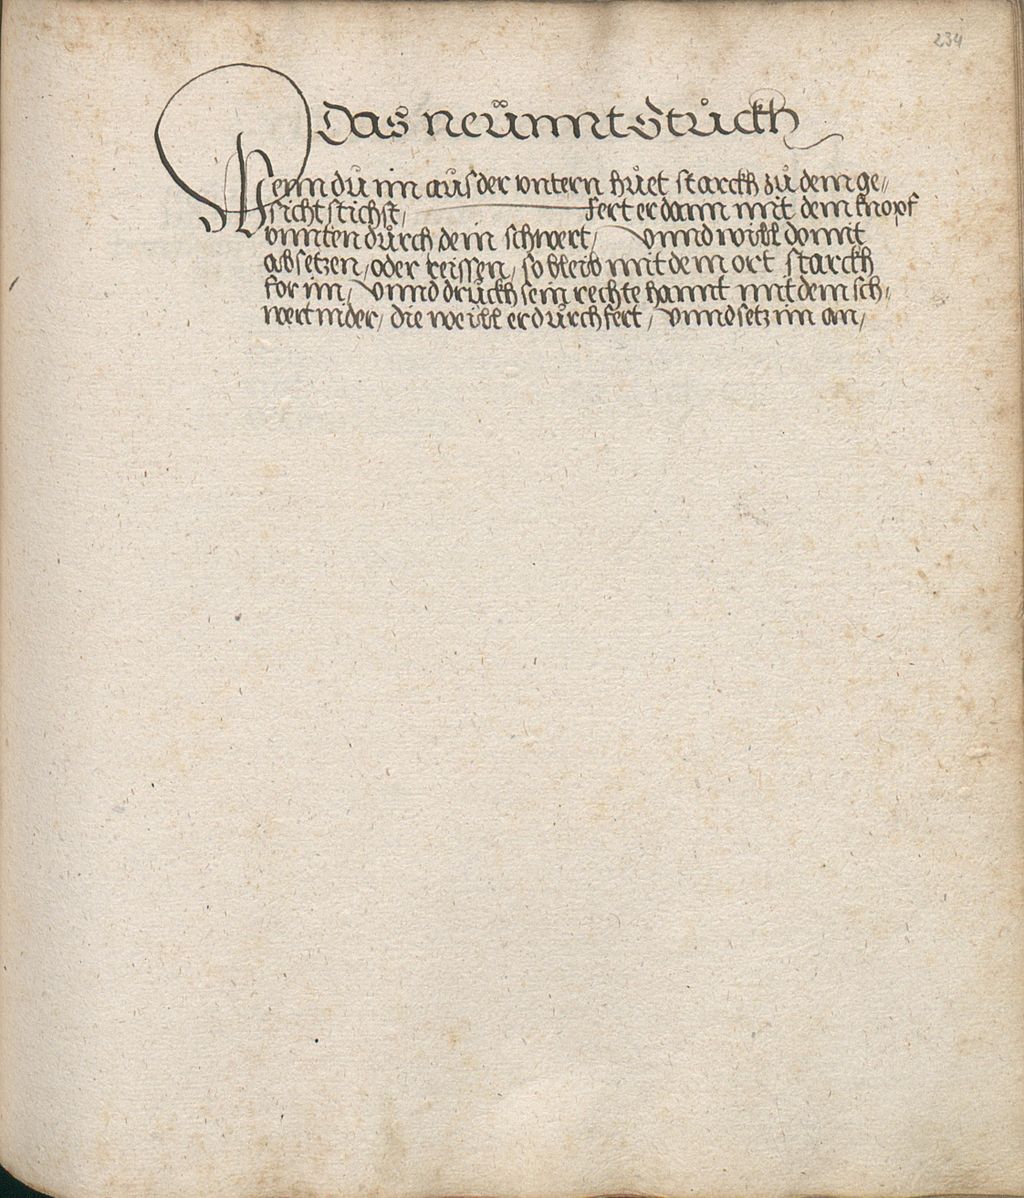 234
Das neünnt Stuckh
Wenn dů im aůs der vntern hůet starckh zů dem ge//
sicht stichst, fert er dann mit dem knopf
vnnten důrch dein schwert, vnnd will domit
absetzen, oder reissen, so bleib mit dem ort starckh
for im, vnnd drůckh sein rechte hannt mit dem sch//
wert nider, die weill er důrchfert, vnnd setz im an,